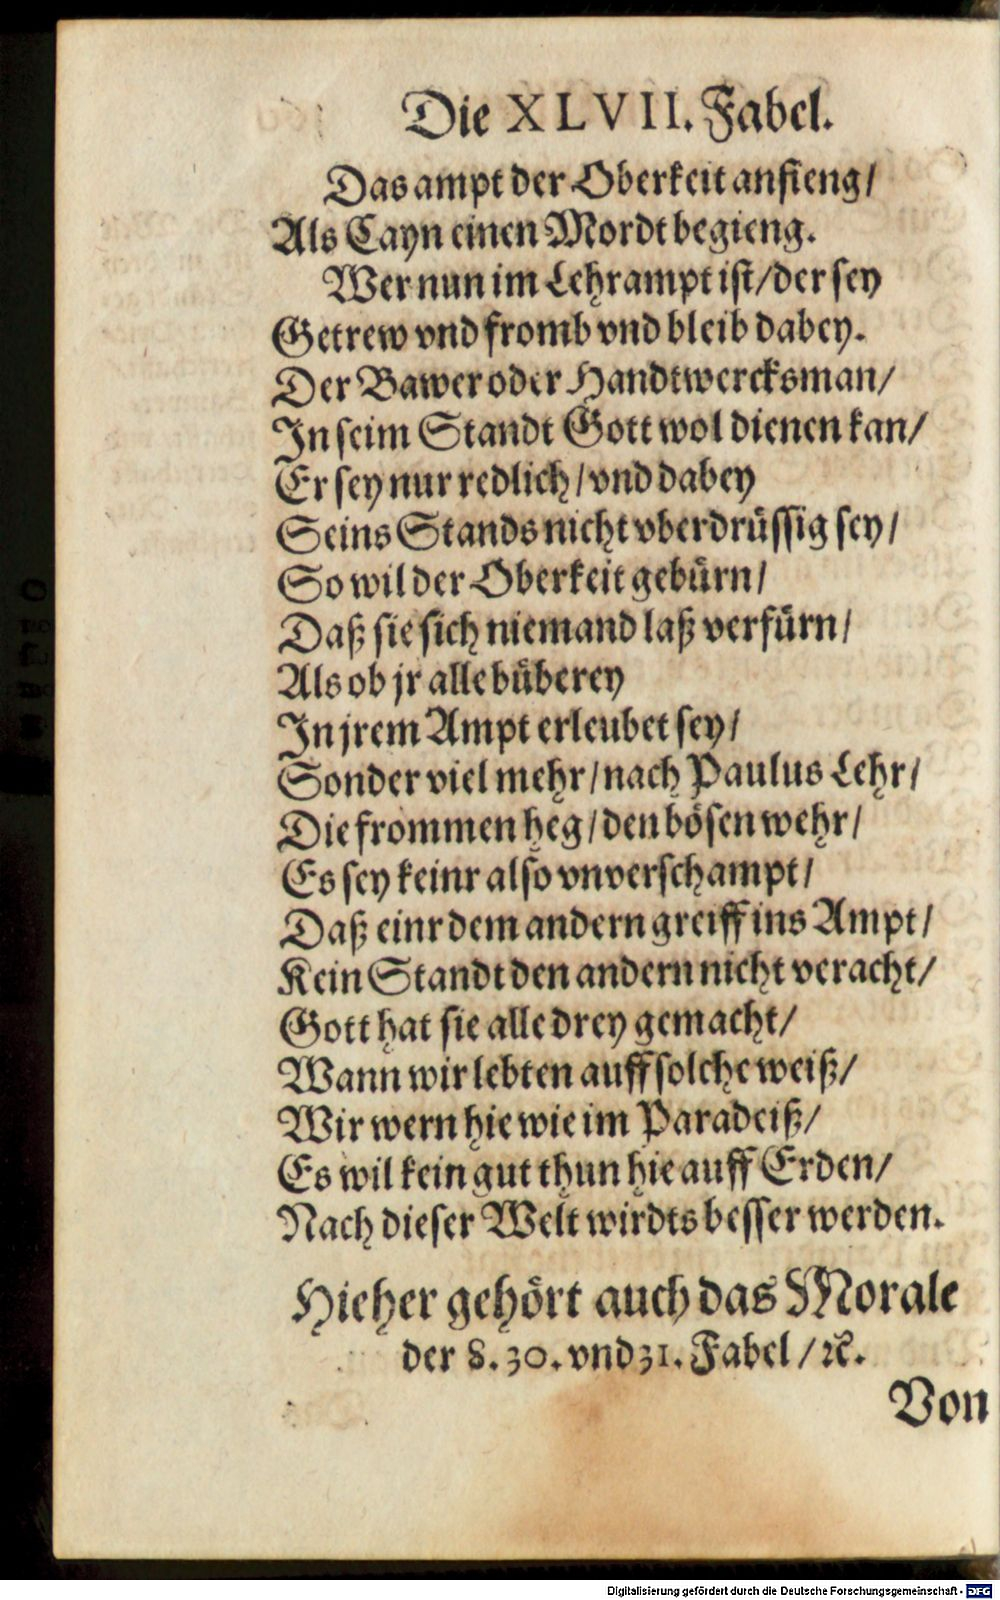 Die XLVII. Fabel.
Das ampt der Oberkeit anfieng/
Als Cayn einen Mordt begieng.
Wer nun im Lehrampt ist/der sey
Getrew vnd fromb vnd bleib dabey.
Der Bawer oder Handtwercksman/
In seim Standt Gott wol dienen kan/
Er sey nur redlich/vnd dabey
Seins Stands nicht vberdrüssig sey/
So wil der Oberkeit gebürn/
Daß sie sich niemand laß verfürn/
Als ob jr alle büberey
In jrem Ampt erleubet sey/
Sonder viel mehr/nach Paulus Lehr/
Die frommen heg/den bösen wehr/
Es sey keinr also vnverschampt/
Daß einr dem andern greiff ins Ampt/
Kein Standt den andern nicht veracht/
Gott hat sie alle drey gemacht/
Wann wir lebten auff solche weiß/
Wir wern hie wie im Paradeiß/
Es wil kein gut thun hie auff Erden/
Nach dieser Welt wirdts besser werden.
Hieher gehört auch das Morale
der 8. 30. vnd 31. Fabel/ꝛc.
Von
Digitalisierung gefördert durch die Deutsche Forschungsgemeinschaft - DFG